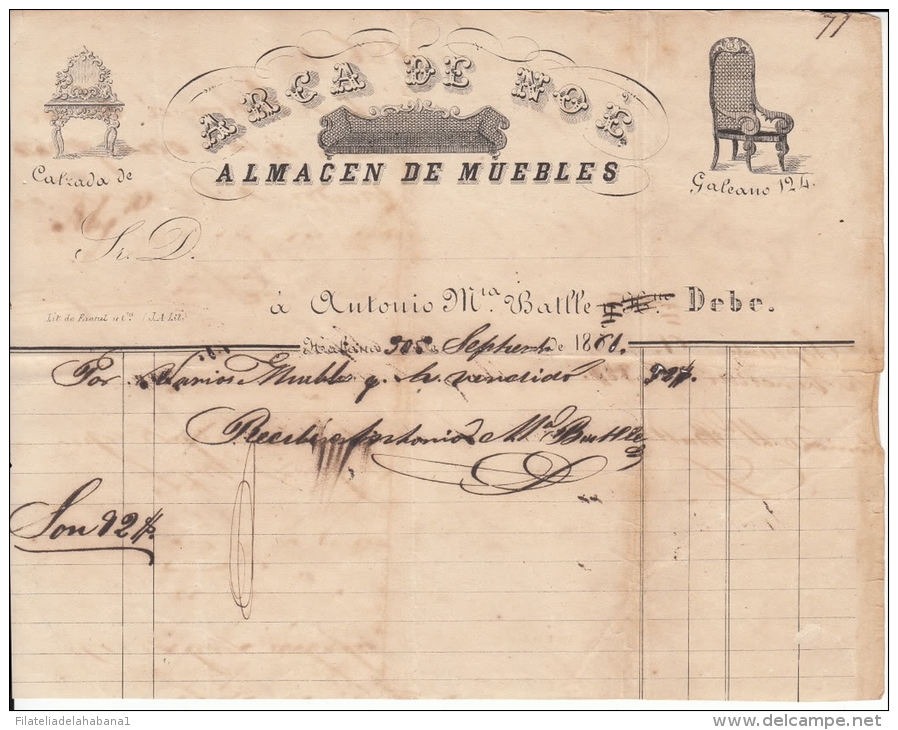 77
ARCA DE NOE.
ALMACEN DE MUEBLES
Calzada de
Galeano 124.
Sr. D.
á Antonio Mᵗᵃ Batlle Debe.
Lit. de y Cª (J.A Lit.)
Habana de 18
Por Varios Muebles q. le vendido
Recibi Antonio Mª Batlle
Son 92 $.
Filateliadelahabana1
www.delcampe.net